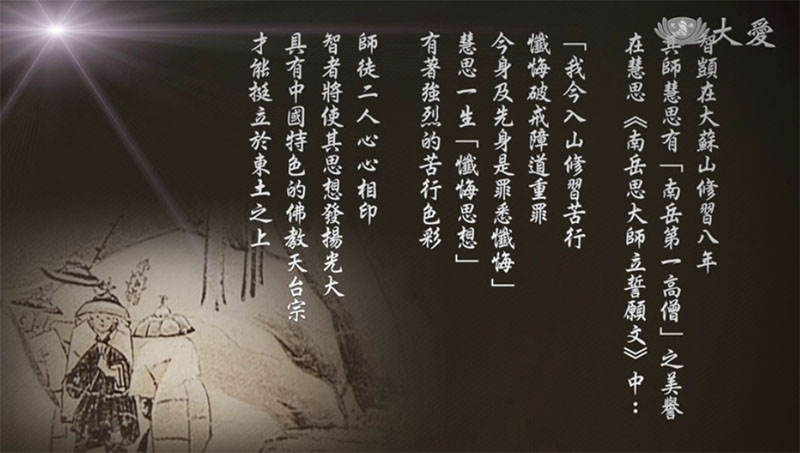 大愛
智顗在大蘇山修習八年
其師慧思有「南岳第一高僧」之美譽
在慧思《南岳思大師立誓願文》中：
「我今入山修習苦行
懺悔破戒障道重罪
今身及先身是罪悉懺悔」
慧思一生「懺悔思想」
有著強烈的苦行色彩
師徒二人心心相印
智者將使其思想發揚光大
具有中國特色的佛教天台宗
才能挺立於東土之上